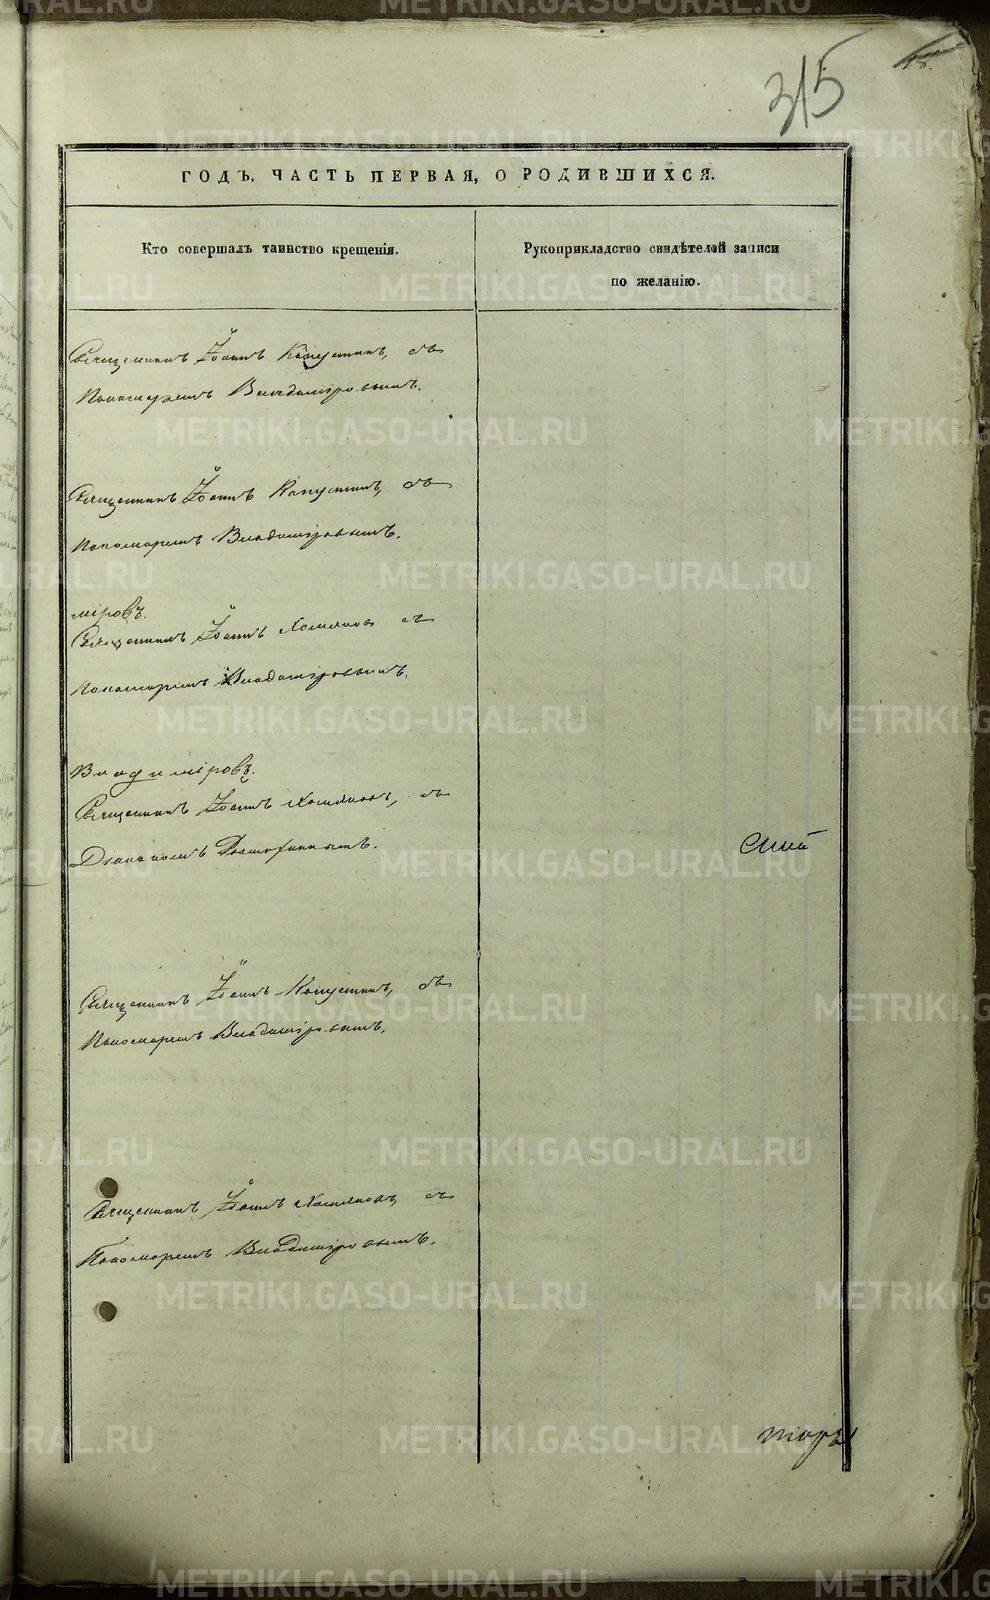 315
18.
ГОДЪ, ЧАСТЬ ПЕРВАЯ, О РОДИВШИХСЯ.
Кто совершалъ таинство крещенія.
Рукоприкладство свидѣтелей записи
по желанію.
Священникъ Іоаннъ Капустинъ, съ
Пономаремъ Владиміровымъ.
Священникъ Іоаннъ Капустинъ, съ
Пономаремъ Владиміровымъ.
міровъ.
Священникъ Іоаннъ Хомяковъ съ
Пономаремъ Владиміровымъ.
Владиміровъ.
Священникъ Іоаннъ Хомяковъ, съ
Діакономъ
Священникъ Іоаннъ Капустинъ, съ
Пономаремъ Владиміровымъ.
Священникъ Іоаннъ Хомяковъ, съ
Пономаремъ Владиміровымъ.
METRIKI.GASO-URAL.RU